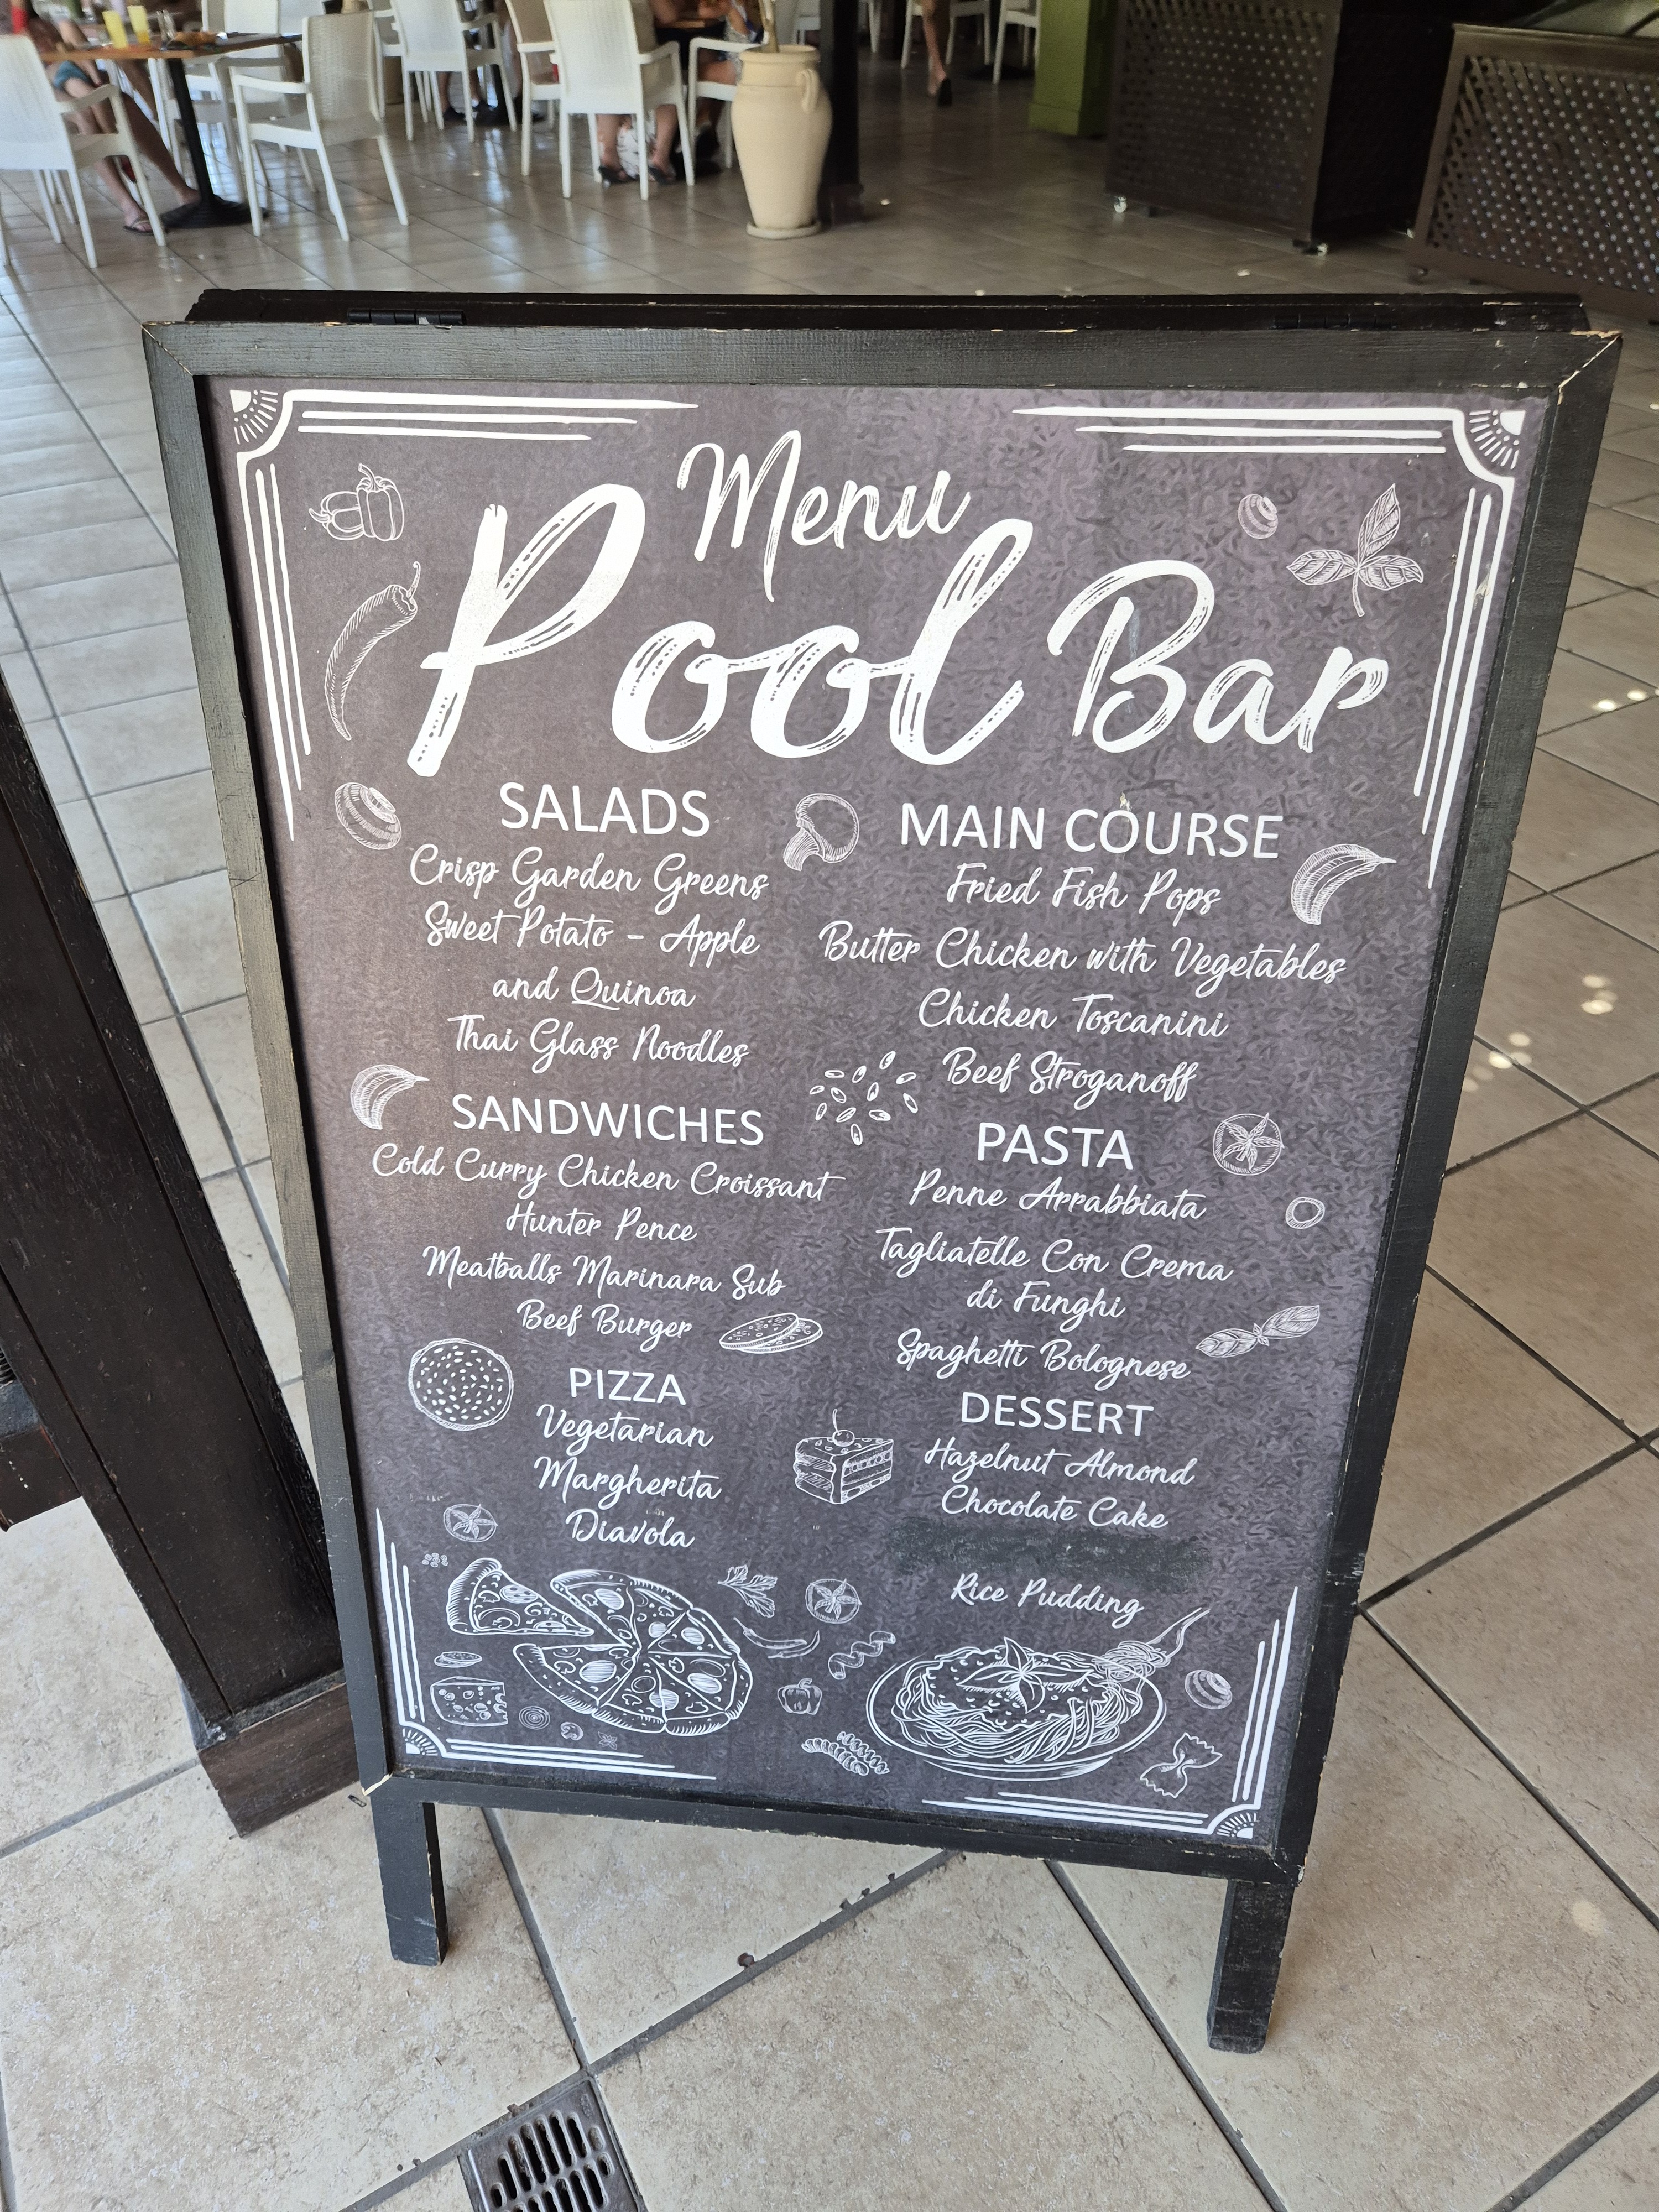 Menu
Pool Bar
SALADS
Crisp Garden Greens
Sweet Potato - Apple
and Quinoa
Thai Glass Noodles
SANDWICHES
Cold Curry Chicken Croissant
Hunter Pence
Meatballs Marinara Sub
Beef Burger
PIZZA
Vegetarian
Margherita
Diavola
MAIN COURSE
Fried Fish Pops
Butter Chicken with Vegetables
Chicken Toscanini
Beef Stroganoff
PASTA
Penne Arrabbiata
Tagliatelle Con Crema
di Funghi
Spaghetti Bolognese
DESSERT
Hazelnut Almond
Chocolate Cake
Rice Pudding